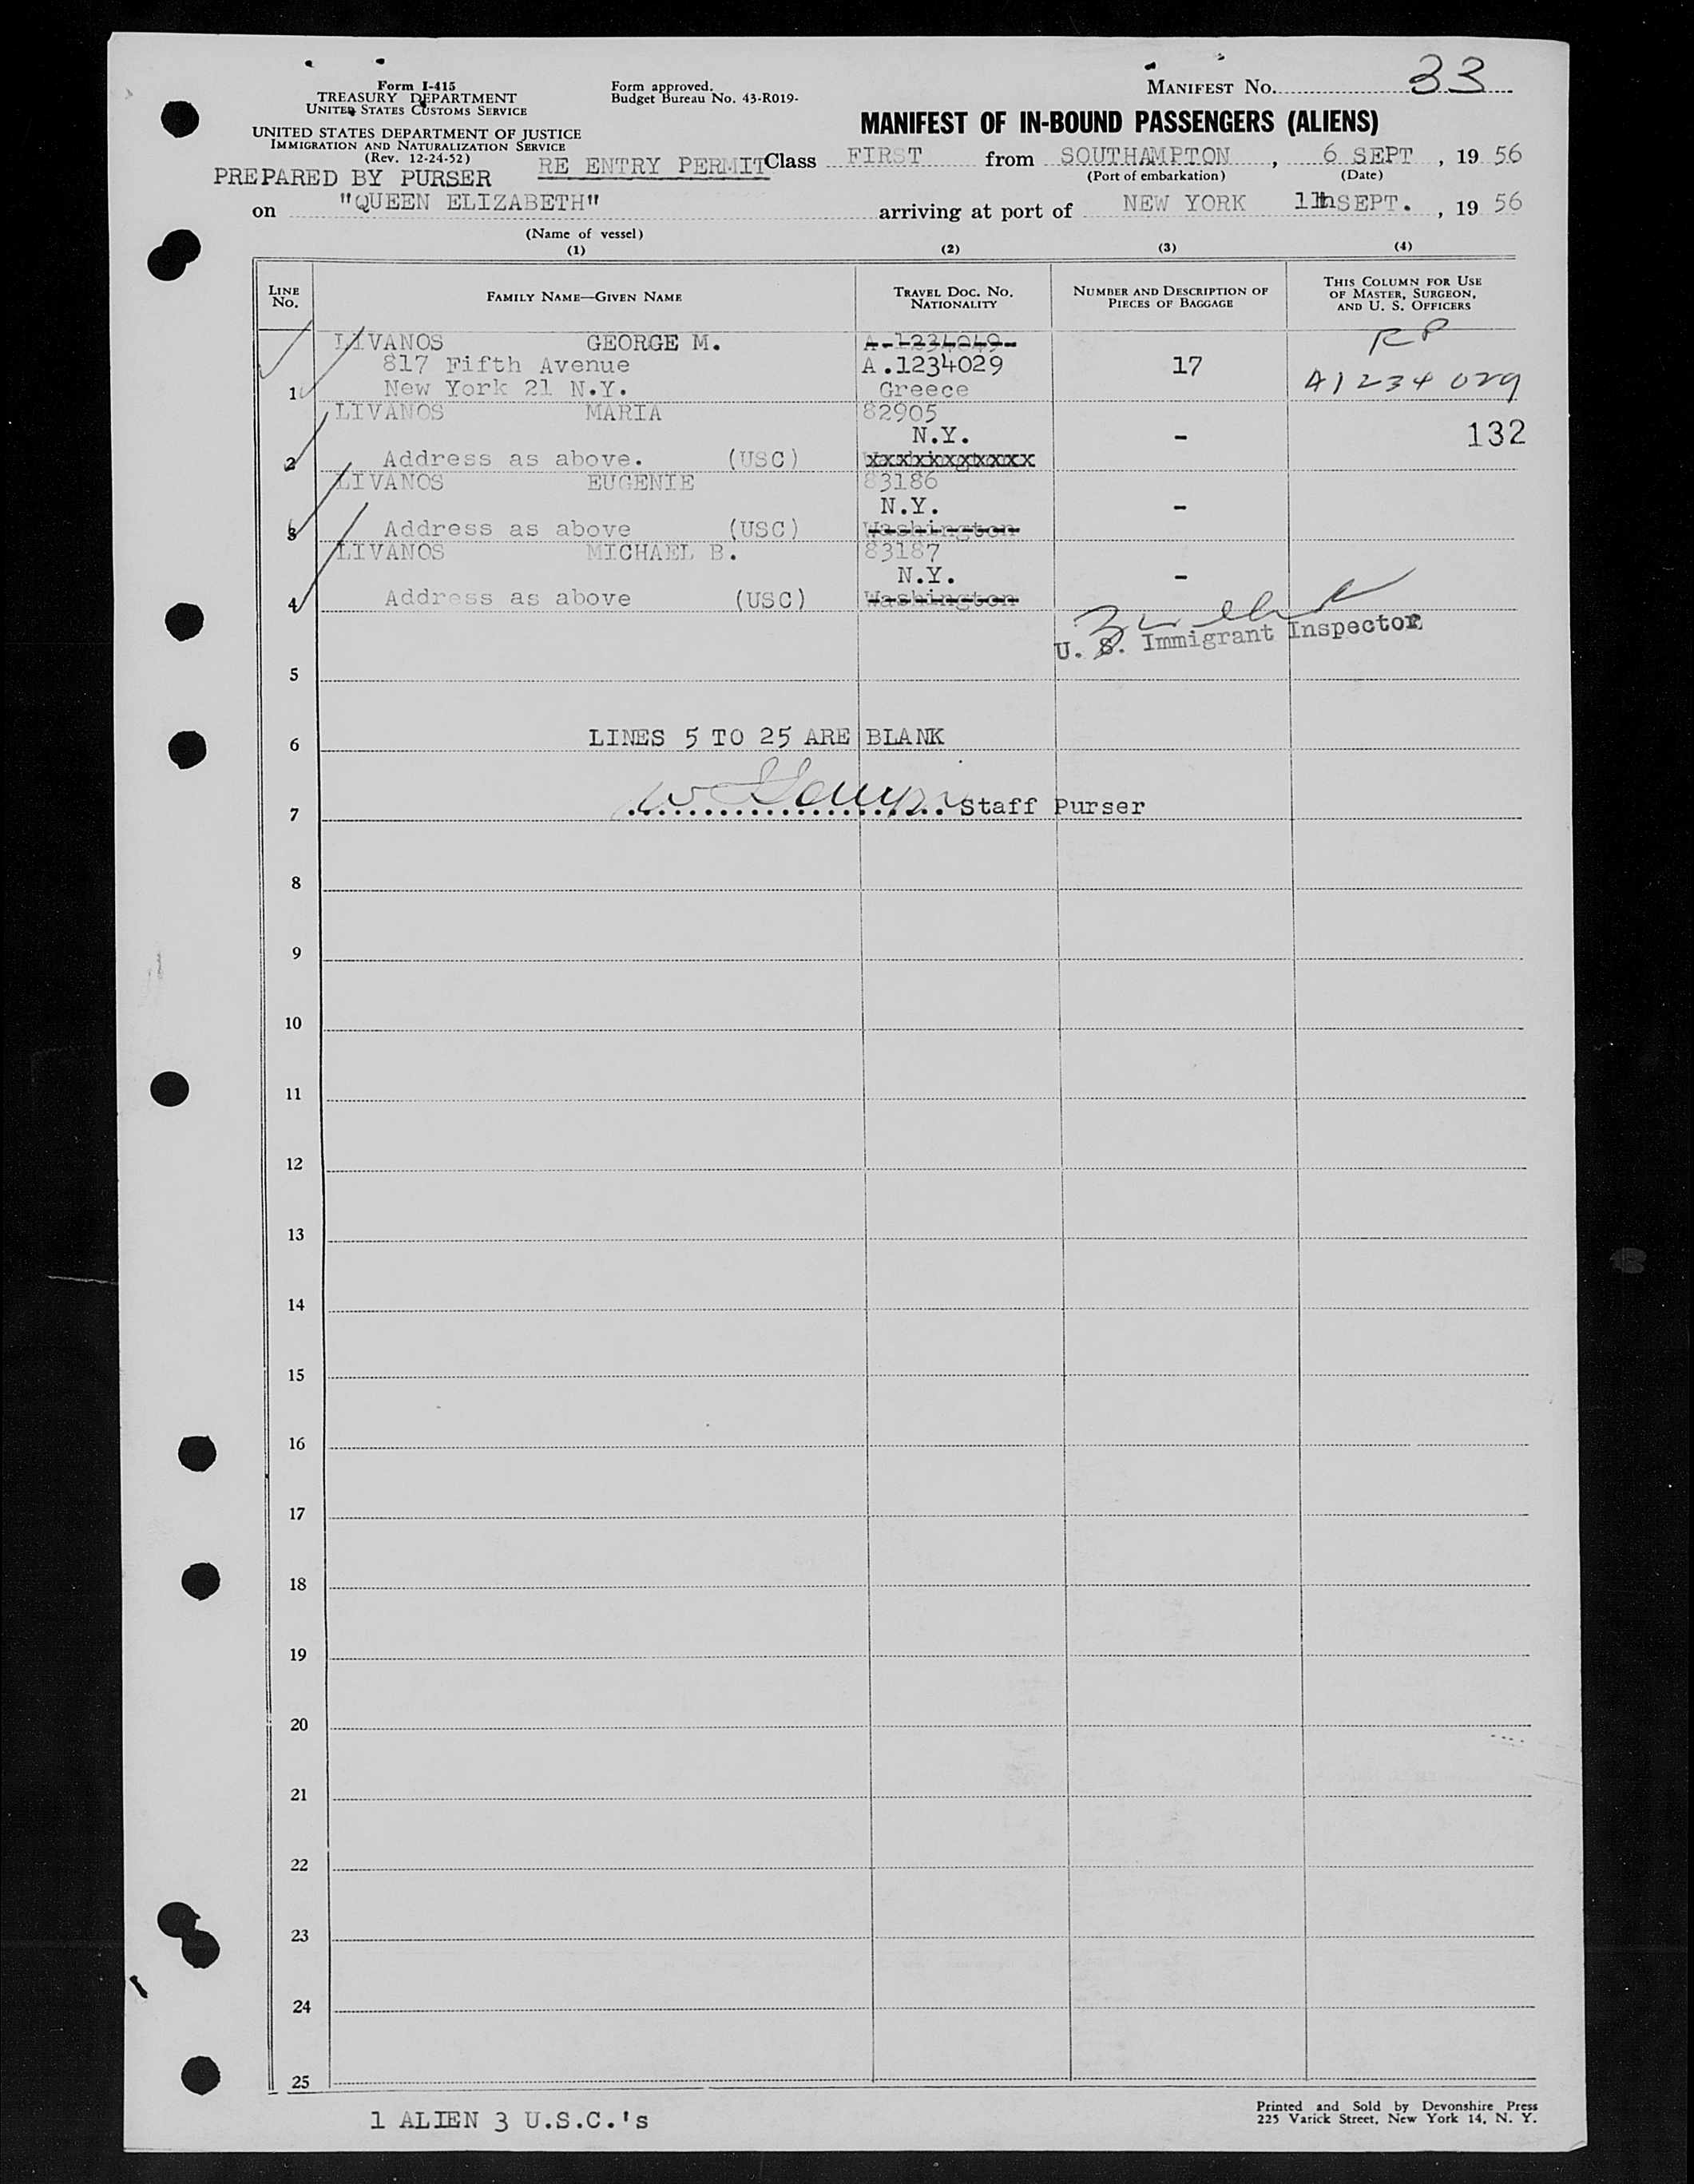 Form I-415
TREASURY DEPARTMENT
UNITED STATES CUSTOMS SERVICE
UNITED STATES DEPARTMENT OF JUSTICE
IMMIGRATION AND NATURALIZATION SERVICE
(Rev. 12-24-52)
PREPARED BY PURSER
Form approved.
Budget Bureau No. 43-R019-
MANIFEST NO. 33
MANIFEST OF IN-BOUND PASSENGERS (ALIENS)
RE ENTRY PERMIT Class FIRST from SOUTHAMPTON, 6 SEPT, 19 56
(Port of embarkation) (Date)
on "QUEEN ELIZABETH" arriving at port of NEW YORK 11th SEPT., 19 56
(Name of vessel)
(1) (2) (3) (4)
LINE NO.
FAMILY NAME—GIVEN NAME
TRAVEL DOC. NO. NATIONALITY
NUMBER AND DESCRIPTION OF PIECES OF BAGGAGE
THIS COLUMN FOR USE OF MASTER, SURGEON, AND U. S. OFFICERS
LIVANOS GEORGE M. A-1234049- RP
817 Fifth Avenue A.1234029 17
1 New York 21 N.Y. Greece A1234029
LIVANOS MARIA 82905
N.Y. - 132
2 Address as above. (USC) xxxxxxxxxxxx
LIVANOS EUGENIE 83186
N.Y. -
3 Address as above (USC) Washington
LIVANOS MICHAEL B. 83187
N.Y. -
4 Address as above (USC) Washington
U. S. Immigrant Inspector
5
6 LINES 5 TO 25 ARE BLANK
7 Staff Purser
8
9
10
11
12
13
14
15
16
17
18
19
20
21
22
23
24
25
1 ALIEN 3 U.S.C.'s
Printed and Sold by Devonshire Press
225 Varick Street, New York 14, N. Y.